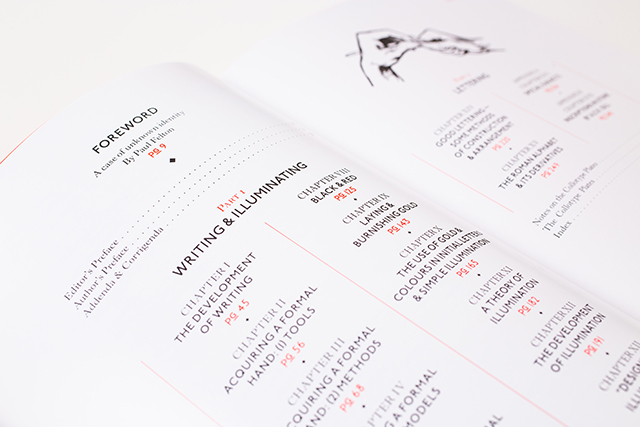 FOREWORD
A case of unknown identity
By Paul Felton
PG. 9
Editor's Preface
Author's Preface
Addenda & Corrigenda
PART I
WRITING & ILLUMINATING
CHAPTER I
THE DEVELOPMENT
OF WRITING
PG. 45
CHAPTER II
ACQUIRING A FORMAL
HAND: (1) TOOLS
PG. 56
ACQUIRING A FORMAL
HAND: (2) METHODS
PG. 68
CHAPTER IV
A FORMAL
MODELS
CHAPTER VIII
BLACK & RED
PG. 125
CHAPTER IX
LAYING &
BURNISHING GOLD
PG. 143
CHAPTER X
THE USE OF GOLD &
COLOURS IN INITIAL LETTERS
& SIMPLE ILLUMINATION
PG. 165
CHAPTER XI
A THEORY OF
ILLUMINATION
PG. 182
CHAPTER XII
THE DEVELOPMENT
OF ILLUMINATION
PG. 191
'DESIGN'
LETTERING
GOOD LETTERING—
SOME METHODS
OF CONSTRUCTION
& ARRANGEMENT
CHAPTER XV
THE ROMAN ALPHABET
& ITS DERIVATIVES
PG. 249
Notes on the Collotype Plates
The Collotype Plates
Index